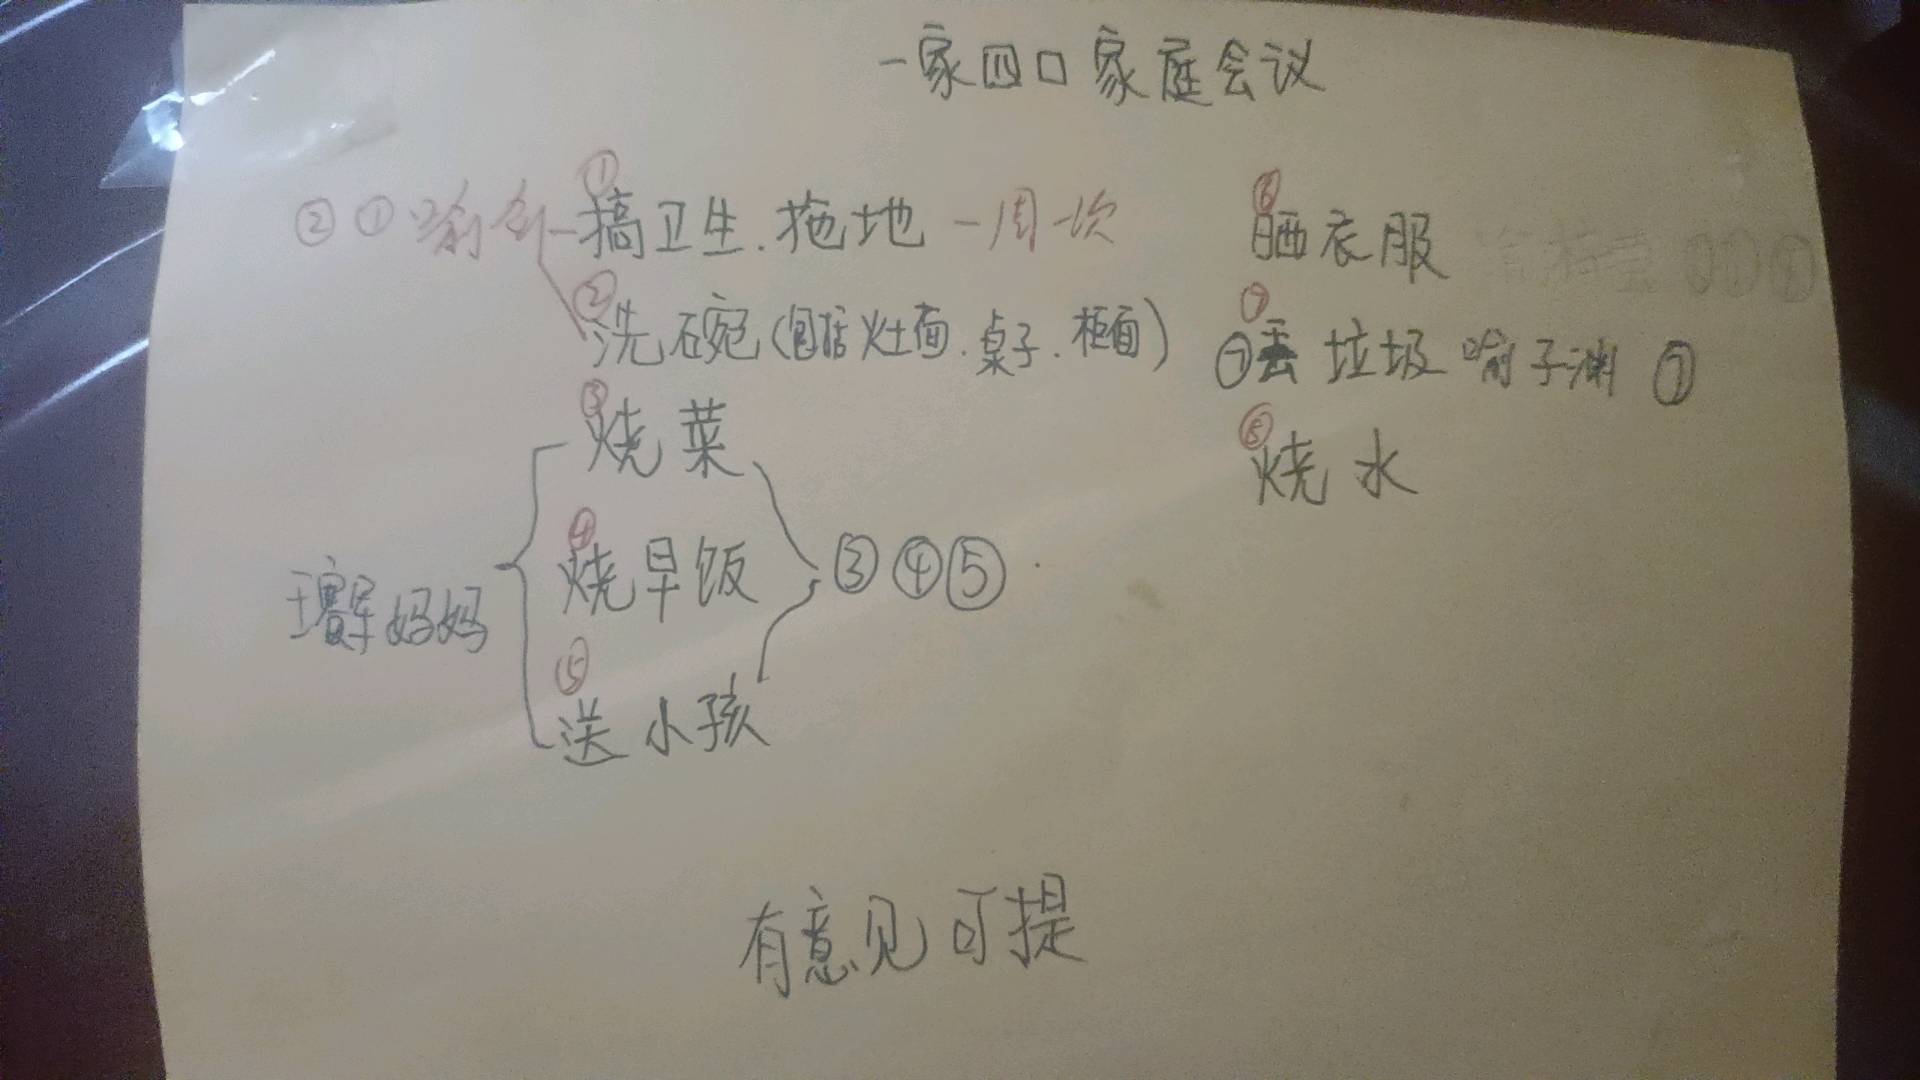 一家四口家庭会议
① ⑥
② ① 喻 搞卫生.拖地 一周一次 晒衣服
② ⑦
洗碗(包括灶面.桌子.柜面) ⑦丢垃圾 喻子渊 ⑦
③ ⑧
烧菜 烧水
④
烧早饭 ③④⑤
妈妈
⑤
送小孩
有意见可提